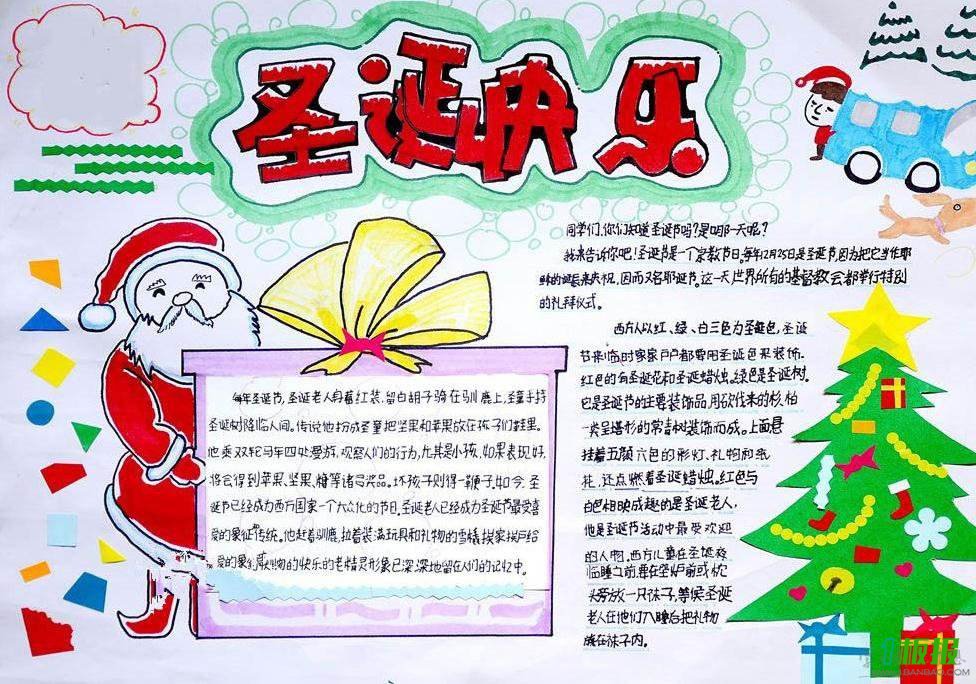 圣诞快乐
同学们,你们知道圣诞节吗?是哪一天呢?
我来告诉你吧!圣诞是一个宗教节日,每年12月25日是圣诞节因为把它当作耶
稣的诞辰来庆祝,因而又名耶诞节。这一天世界所有的基督教会都举行特别
的礼拜仪式。
西方人以红、绿、白三色为圣诞色,圣诞
节来临时家家户户都要用圣诞色来装饰。
红色的有圣诞花和圣诞蜡烛。绿色是圣诞树。
它是圣诞节的主要装饰品,用砍伐来的杉、柏
一类呈塔形的常青树装饰而成。上面悬
挂着五颜六色的彩灯、礼物和纸
花,还点燃着圣诞蜡烛。红色与
白色相映成趣的是圣诞老人,
他是圣诞节活动中最受欢迎
的人物。西方儿童在圣诞夜
临睡之前,要在壁炉前或枕
头旁放一只袜子,等候圣诞
老人在他们入睡后把礼物
放在袜子内。
每年圣诞节,圣诞老人身着红装,留白胡子骑在驯鹿上,圣童手持
圣诞树降临人间。传说他扮成圣童把坚果和苹果放在孩子们鞋里。
他乘双轮马车四处漫游,观察人们的行为,尤其是小孩,如果表现好,
将会得到苹果、坚果、糖等诸多奖品。坏孩子则得一鞭子。如今,圣
诞节已经成为西方国家一个大众化的节日,圣诞老人已经成为圣诞节最受喜
爱的象征传统。他赶着驯鹿,拉着装满玩具和礼物的雪橇挨家挨户给
礼物的快乐的老精灵形象已深深地留在人们的记忆中。
板报
BANBAO.COM